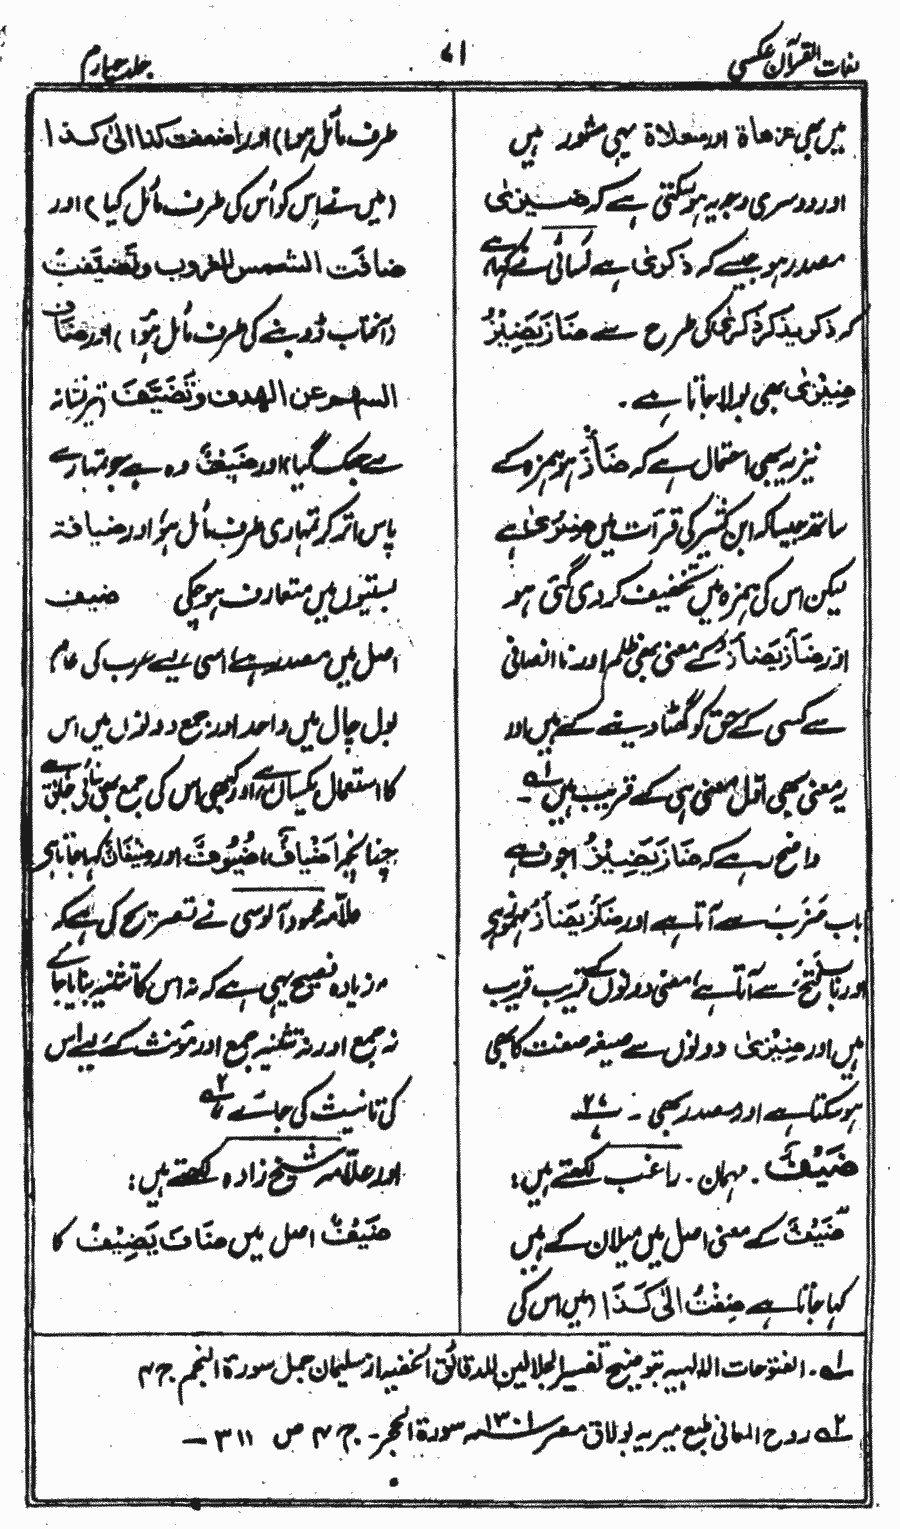 لغات القرآن عکسی
۷۱
جلد چہارم
میں بھی عزھاۃ اور سعلاۃ یہی مشہور ہیں
اور دوسری وجہ یہ ہو سکتی ہے کہ ضِیزیٰ
مصدر ہو جیسے کہ ذکریٰ ہے کسائی نے کہا ہے
کہ ذکر یذکر ذکریٰ کی طرح سے ضَازَ یَضِیْزُ
ضِیْزیٰ بھی بولا جاتا ہے۔
نیز یہ بھی احتمال ہے کہ ضَأَزَ ہو ہمزہ کے
ساتھ جیسا کہ ابن کثیر کی قرآت میں ضِئزیٰ ہے
لیکن اس کی ہمزہ میں تخفیف کر دی گئی ہو
اور ضَأَزَ یَضْأَزُ کے معنی بھی ظلم اور نا انصافی
سے کسی کے حق کو گھٹا دینے کے ہیں اور
یہ معنی بھی اوّل معنی ہی کے قریب ہیں لہ۔
واضح رہے کہ ضَازَ یَضِیْزُ اجوف ہے
باب ضَرَبَ سے آتا ہے اور ضَئَزَ یَضْأَزُ مہموز ہے
اور باب فَتَحَ سے آتا ہے، معنی دونوں کے قریب قریب
ہیں اور ضِیْزیٰ دونوں سے صیغہ صفت کا بھی
ہو سکتا ہے اور مصدر بھی۔ ۲۷
ضَیْفُ۔ مہمان۔ راغب لکھتے ہیں:
ضَیْفُ کے معنی اصل میں میلان کے ہیں
کہا جاتا ہے ضِفْتُ اِلیٰ کَذَا (میں اس کی
طرف مائل ہوا) اور اضفت کذا الیٰ کذا
(میں نے اِس کو اُس کی طرف مائل کیا) اور
ضافَتِ الشمس للغروب و تَضَیَّفَتْ
(آفتاب ڈوبنے کی طرف مائل ہوا) اور ضَافَ
السھم عن الھدف و تَضَیَّفَ تیر نشانہ
سے جھک گیا، اور ضَیْفُ وہ ہے جو تمہارے
پاس اتر کر تمہاری طرف مائل ہو، اور ضیافۃ
بستیوں میں متعارف ہو چکی ضیف
اصل میں مصدر ہے، اسی لیے عرب کی عام
بول چال میں واحد اور جمع دونوں میں اس
کا استعمال یکساں ہے، اور کبھی اس کی جمع بھی بنائی جاتی ہے
چنانچہ اَضْیافٌ، ضُیُوفٌ، اور ضِیْفَانٌ کہا جاتا ہے
علّامہ محمود آلوسی نے تصریح کی ہے کہ
زیادہ فصیح یہی ہے کہ نہ اس کا تثنیہ بنایا جائے
نہ جمع اور نہ تثنیہ جمع اور مؤنث کے لیے اس
کی تانیث کی جائے ۲؎
اور علّامہ شیخ زادہ لکھتے ہیں:
ضَیْفُ اصل میں ضَافَ یَضِیْفُ کا
۱؎۔ الفتوحات الالہیہ بتوضیح تفسیر الجلالین للدقائق الخفیہ از سلیمان جمل سورۃ النجم ج ۴
۲؎ روح المعانی طبع میریہ بولاق مصر ۱۳۰۱ھ سورۃ الحجر۔ ج ۴ ص ۳۱۱ —